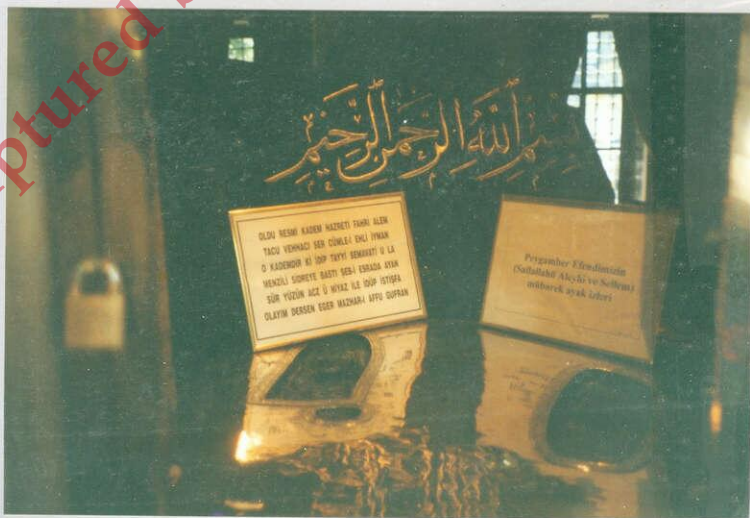 ptured
بسم الله الرحمن الرحيم
OLDU RESMİ KADEM HAZRETİ FAHRİ ALEM
TACU VEHHACI SER CÜMLE-İ EHLİ İYMAN
O KADEMDİR Kİ İDİP TAYYİ SEMAVATİ U LA
MENZİLİ SİDREYE BASTI ŞEB-İ ESRADA AYAN
SÜR YÜZÜN ACZ Ü NİYAZ İLE İDÜP İSTİŞFA
OLAYIM DERSEN EGER MAZHAR-I AFFU GUFRAN
Peygamber Efendimizin
(Sallallahü Aleyhi ve Sellem)
mübarek ayak izleri